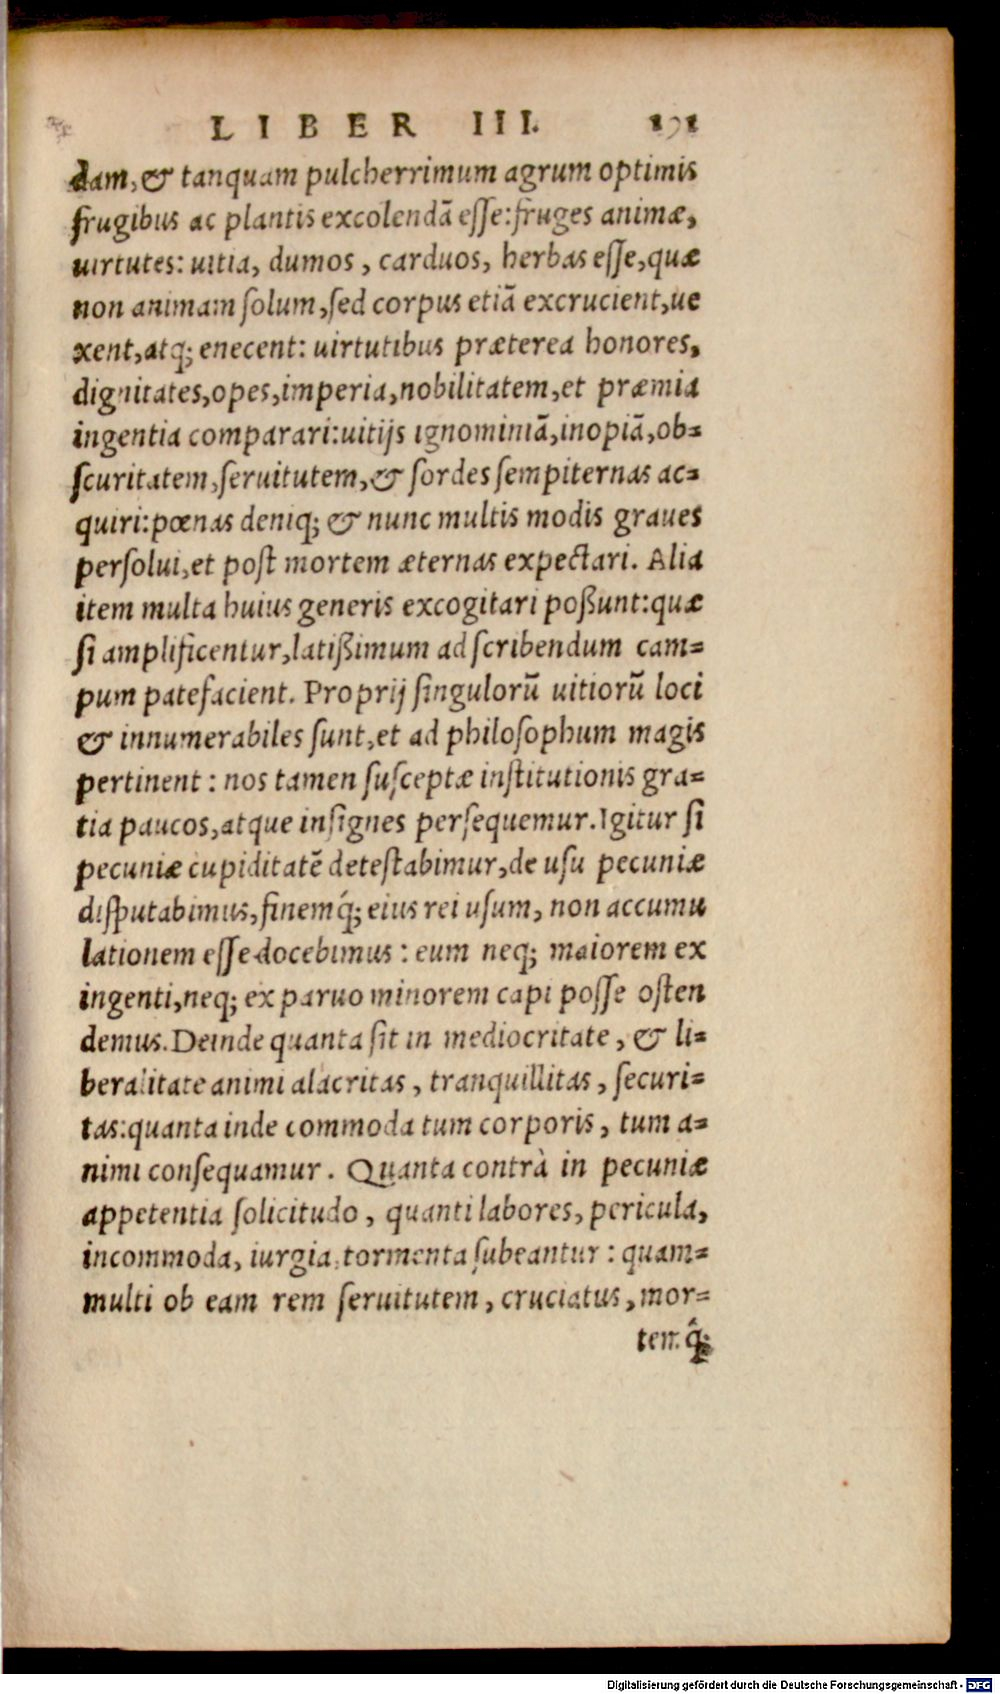 LIBER III. 191
dam, & tanquam pulcherrimum agrum optimis
frugibus ac plantis excolendā esse: fruges animæ,
uirtutes: uitia, dumos, carduos, herbas esse, quæ
non animam solum, sed corpus etiā excrucient, ue
xent, atq; enecent: uirtutibus præterea honores,
dignitates, opes, imperia, nobilitatem, et præmia
ingentia comparari: uitijs ignominiā, inopiā, ob=
scuritatem, seruitutem, & sordes sempiternas ac=
quiri: pœnas deniq; & nunc multis modis graues
persolui, et post mortem æternas expectari. Alia
item multa huius generis excogitari poßunt: quæ
si amplificentur, latißimum ad scribendum cam=
pum patefacient. Proprij singulorū uitiorū loci
& innumerabiles sunt, et ad philosophum magis
pertinent: nos tamen susceptæ institutionis gra=
tia paucos, atque insignes persequemur. Igitur si
pecuniæ cupiditatē detestabimur, de usu pecuniæ
disputabimus, finemq́; eius rei usum, non accumu
lationem esse docebimus: eum neq; maiorem ex
ingenti, neq; ex paruo minorem capi posse osten
demus. Deinde quanta sit in mediocritate, & li=
beralitate animi alacritas, tranquillitas, securi=
tas: quanta inde commoda tum corporis, tum a=
nimi consequamur. Quanta contrà in pecuniæ
appetentia solicitudo, quanti labores, pericula,
incommoda, iurgia, tormenta subeantur: quam=
multi ob eam rem seruitutem, cruciatus, mor=
temq́;
Digitalisierung gefördert durch die Deutsche Forschungsgemeinschaft - DFG